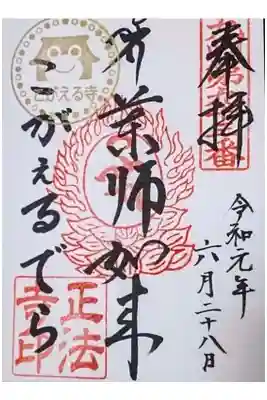 奉拝
令和元年
六月二十八日
薬師如来
こがえるでら
こがえる寺
正法
寺印